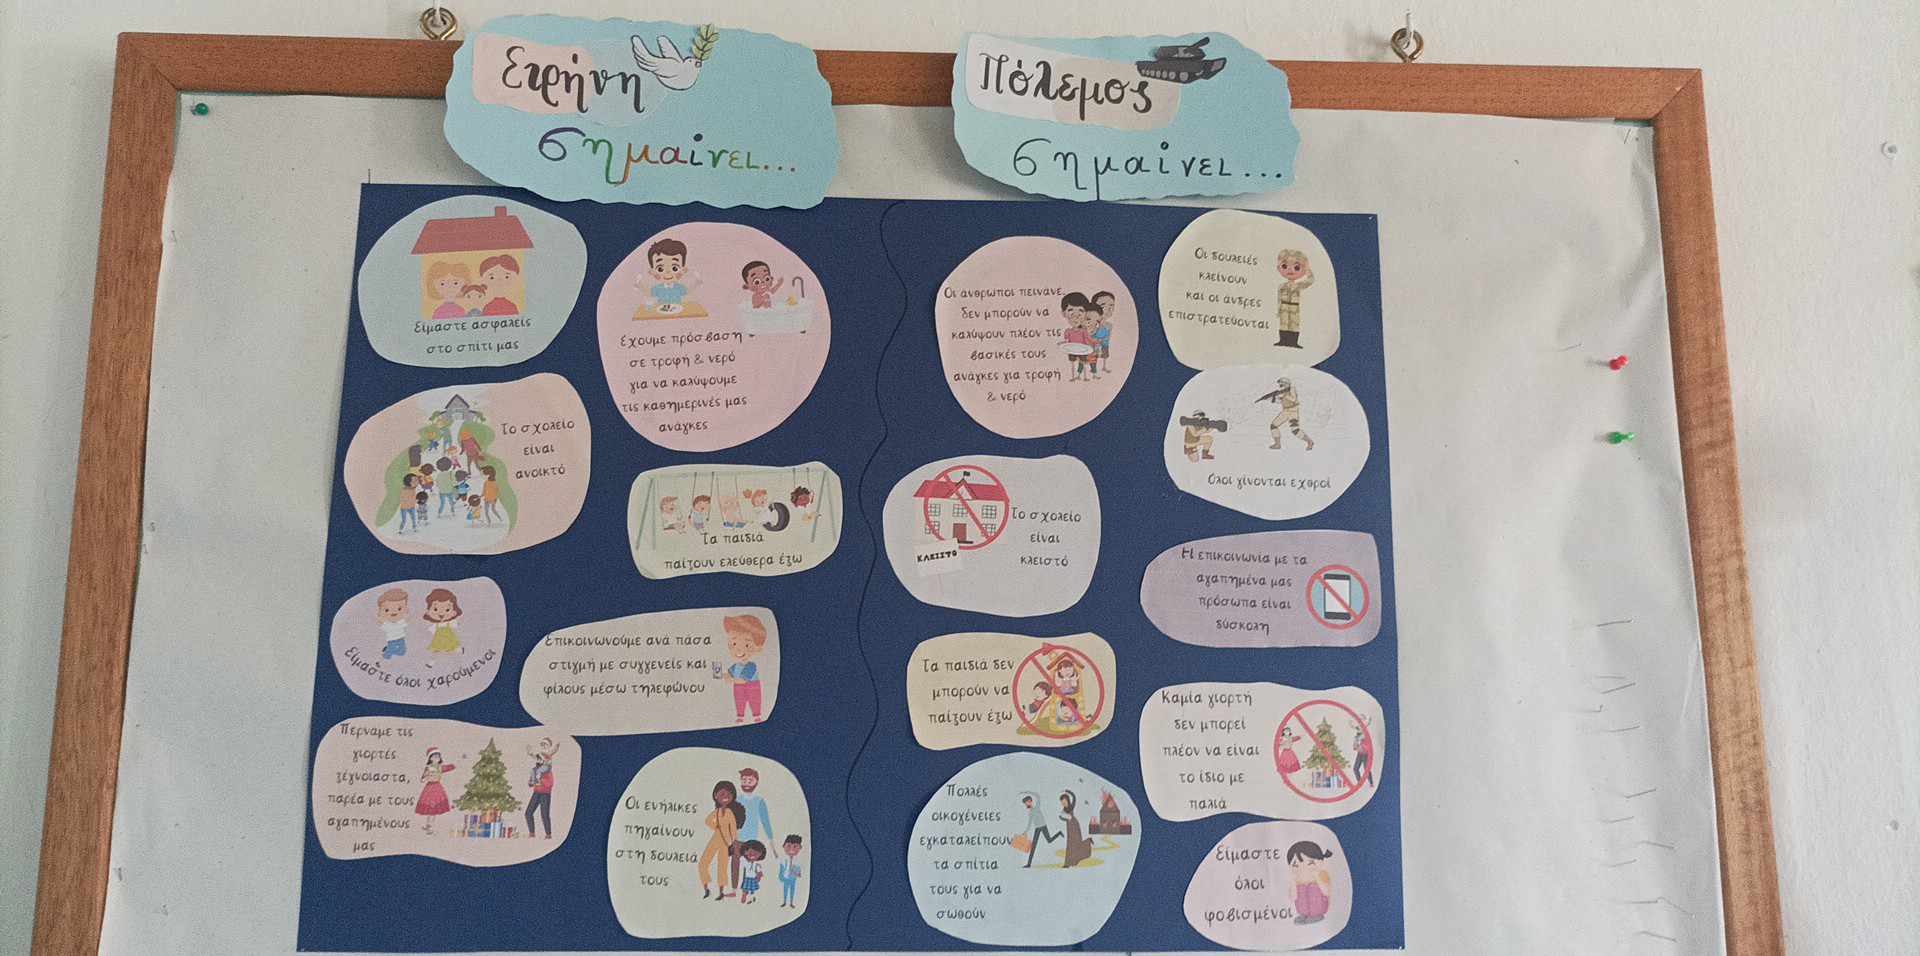 Ειρήνη
σημαίνει...
Είμαστε ασφαλείς
στο σπίτι μας
Έχουμε πρόσβαση
σε τροφή & νερό
για να καλύψουμε
τις καθημερινές μας
ανάγκες
Το σχολείο
είναι
ανοικτό
Τα παιδιά
παίζουν ελεύθερα έξω
Είμαστε όλοι χαρούμενοι
Επικοινωνούμε ανά πάσα
στιγμή με συγγενείς και
φίλους μέσω τηλεφώνου
Περνάμε τις
γιορτές
ξέγνοιαστα,
παρέα με τους
αγαπημένους
μας
Οι ενήλικες
πηγαίνουν
στη δουλειά
τους
Πόλεμος
σημαίνει...
Οι άνθρωποι πεινάνε.
δεν μπορούν να
καλύψουν πλέον τις
βασικές τους
ανάγκες για τροφή
& νερό
Οι δουλειές
κλείνουν
και οι άνδρες
επιστρατεύονται
Όλοι γίνονται εχθροί
Το σχολείο
είναι
κλειστό
ΚΛΕΙΣΤΟ
Η επικοινωνία με τα
αγαπημένα μας
πρόσωπα είναι
δύσκολη
Τα παιδιά δεν
μπορούν να
παίξουν έξω
Καμία γιορτή
δεν μπορεί
πλέον να είναι
το ίδιο με
παλιά
Πολλές
οικογένειες
εγκαταλείπουν
τα σπίτια
τους για να
σωθούν
Είμαστε
όλοι
φοβισμένοι